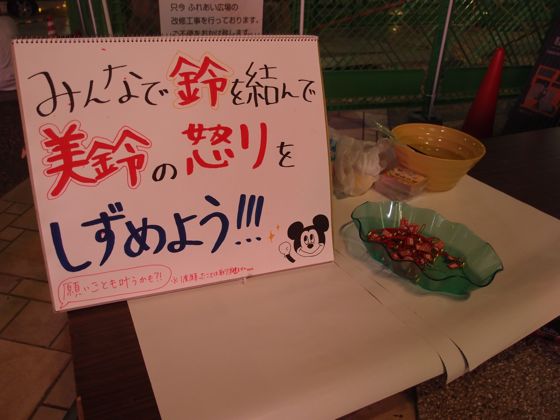 只今 ふれあい広場の
改修工事を行っております。
ご不便をおかけ致します。
みんなで鈴を結んで
美鈴の怒りを
しずめよう!!!
願いごとも叶うかも?!